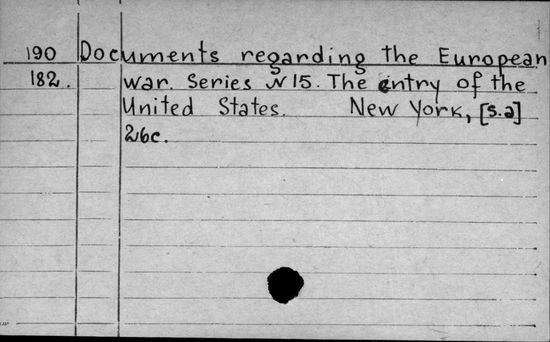 190 Documents regarding the European
182. war. Series N 15. The entry of the
United States. New York, [s.a]
26c.